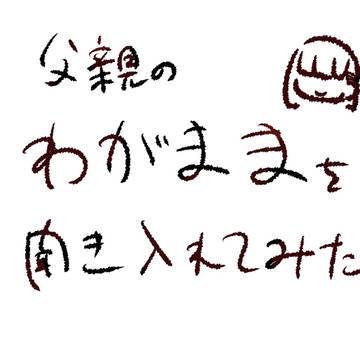 父親の
わがままを
聞き入れてみた